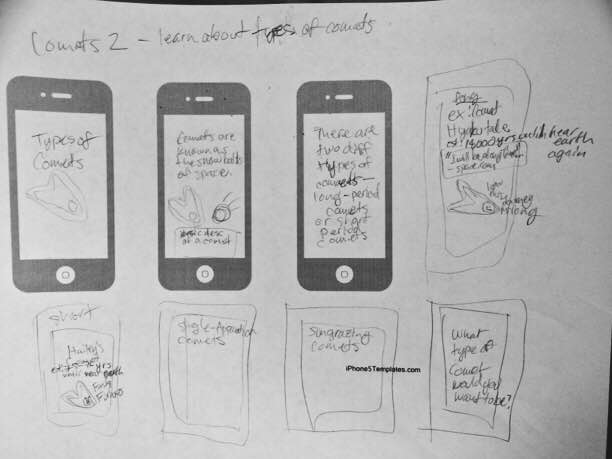 Comets 2 - learn about types of comets
Types of
Comets
Comets are
known as
the snowballs
of space.
basic desc
of a comet
There are
two diff
types of
comets -
long-period
comets
or short
period
comets
long
ex: Comet
Hyakutake
14,000 yrs until near
earth
again
short
Halley's
yrs
until near earth
Single-Apparition
comets
Sungrazing
comets
iPhone5Templates.com
What
type of
comet
would you
want to be?